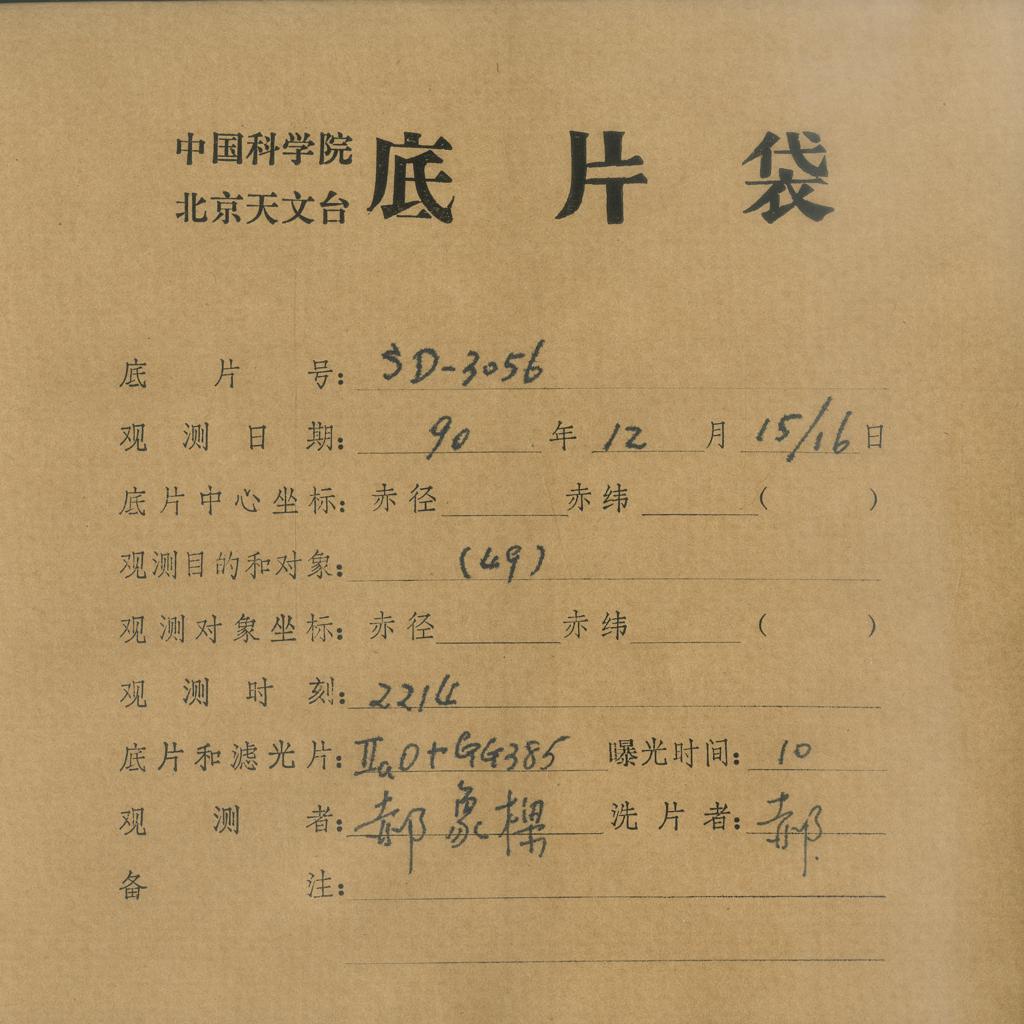 中国科学院
北京天文台
底片袋
底片号: SD-3056
观测日期: 90年12月15/16日
底片中心坐标: 赤径 赤纬 ( )
观测目的和对象: (49)
观测对象坐标: 赤径 赤纬 ( )
观测时刻: 2214
底片和滤光片: IIaO+GG385 曝光时间: 10
观测者: 郝象樑 洗片者: 郝
备注: